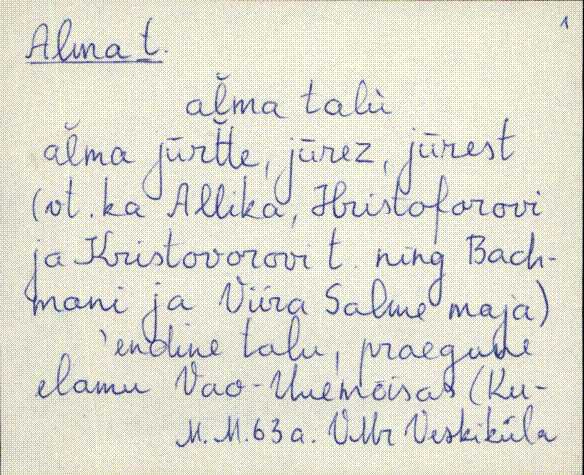 1
Alma t.
al̆ma talù
al̆ma jūrt̆te, jūrez, jūrest
(vt. ka Allika, Hristoforovi
ja Kristovorovi t ning Bach-
mani ja Viira Salme maja)
ˋendine talu, praegune
elamu Vao-Uuemõisas (Ku-
M. M. 63 a. VMr Veskiküla